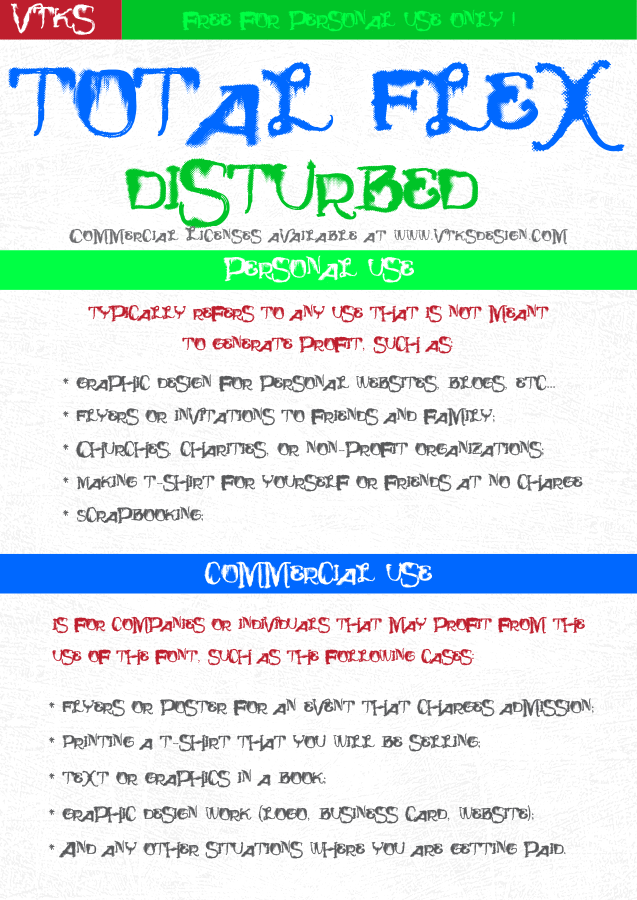 VTKS
FREE FOR PERSONAL USE ONLY !
TOTAL FLEX
DISTURBED
COMMERCIAL LICENSES AVAILABLE AT WWW.VTKSDESIGN.COM
PERSONAL USE
TYPICALLY REFERS TO ANY USE THAT IS NOT MEANT
TO GENERATE PROFIT, SUCH AS:
* GRAPHIC DESIGN FOR PERSONAL WEBSITES, BLOGS, ETC...
* FLYERS OR INVITATIONS TO FRIENDS AND FAMILY;
* CHURCHES, CHARITIES, OR NON-PROFIT ORGANIZATIONS;
* MAKING T-SHIRT FOR YOURSELF OR FRIENDS AT NO CHARGE
* SCRAPBOOKING;
COMMERCIAL USE
IS FOR COMPANIES OR INDIVIDUALS THAT MAY PROFIT FROM THE
USE OF THE FONT, SUCH AS THE FOLLOWING CASES:
* FLYERS OR POSTER FOR AN EVENT THAT CHARGES ADMISSION;
* PRINTING A T-SHIRT THAT YOU WILL BE SELLING;
* TEXT OR GRAPHICS IN A BOOK;
* GRAPHIC DESIGN WORK (LOGO, BUSINESS CARD, WEBSITE);
* AND ANY OTHER SITUATIONS WHERE YOU ARE GETTING PAID.